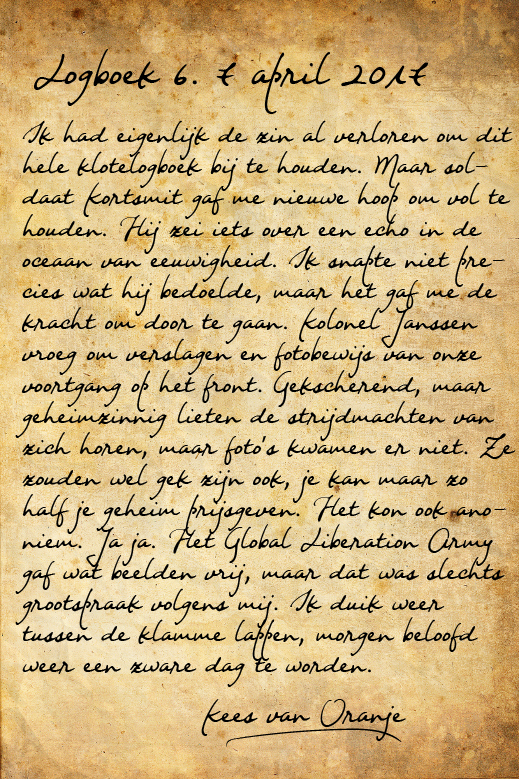 Logboek 6. 7 april 2017
Ik had eigenlijk de zin al verloren om dit
hele klotelogboek bij te houden. Maar sol-
daat Kortsmit gaf me nieuwe hoop om vol te
houden. Hij zei iets over een echo in de
oceaan van eeuwigheid. Ik snapte niet pre-
cies wat hij bedoelde, maar het gaf me de
kracht om door te gaan. Kolonel Janssen
vroeg om verslagen en fotobewijs van onze
voortgang op het front. Gekscherend, maar
geheimzinnig lieten de strijdmachten van
zich horen, maar foto's kwamen er niet. Ze
zouden wel gek zijn ook, je kan maar zo
half je geheim prijsgeven. Het kon ook ano-
niem. Ja ja. Het Global Liberation Army
gaf wat beelden vrij, maar dat was slechts
grootspraak volgens mij. Ik duik weer
tussen de klamme lappen, morgen beloofd
weer een zware dag te worden.
Kees van Oranje